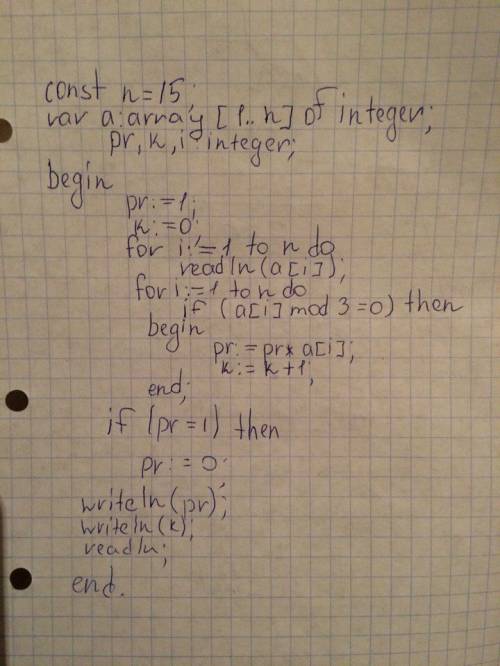 const n=15;
var a:array [1..n] of integer;
pr, k, i: integer;
begin
pr:=1;
k:=0;
for i:=1 to n do
readln(a[i]);
for i:=1 to n do
if (a[i] mod 3=0) then
begin
pr:=pr*a[i];
k:=k+1;
end;
if (pr=1) then
pr:=0;
writeln(pr);
writeln(k);
readln;
end.